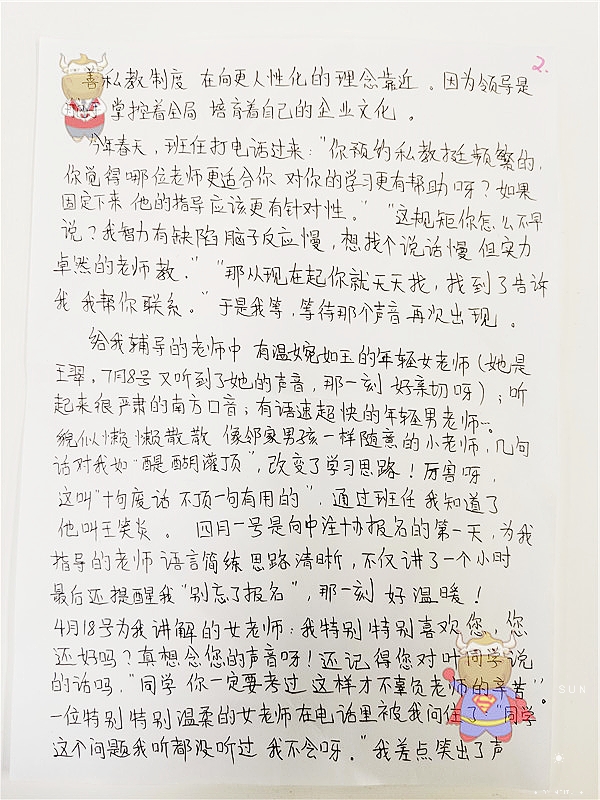 2.
善私教制度 在向更人性化的理念靠近 。因为领导是
掌控着全局 培育着自己的企业文化 。
今年春天，班任打电话过来："你预约私教挺频繁的，
你觉得哪位老师更适合你 对你的学习更有帮助呀？如果
固定下来 他的指导应该更有针对性。" "这规矩你怎么不早
说？我智力有缺陷 脑子反应慢，想找个说话慢 但实力
卓然的老师教。" "那从现在起你就天天找，找到了告诉
我 我帮你联系。" 于是我等，等待那个声音 再次出现 。
给我辅导的老师中 有温婉如玉的年轻女老师（她是
王翠，7月8号又听到了她的声音，那一刻 好亲切呀）；听
起来很严肃的南方口音；有语速超快的年轻男老师…。
貌似懒懒散散 像邻家男孩一样随意的小老师，几句
话对我如"醍醐灌顶"，改变了学习思路！厉害呀，
这叫"十句废话 不顶一句有用的"，通过班任 我知道了
他叫王笑炎 。 四月一号是向中注协报名的第一天，为我
指导的老师 语言简练 思路清晰，不仅讲了一个小时
最后还提醒我"别忘了报名"，那一刻 好温暖！
4月18号为我讲解的女老师：我特别特别喜欢您，您
还好吗？真想念您的声音呀！还记得您对叶同学说
的话吗，"同学 你一定要考过 这样才不辜负老师的辛苦"。
一位特别特别温柔的女老师在电话里被我问住了 "同学
这个问题我听都没听过 我不会呀。" 我差点笑出了声
SUN